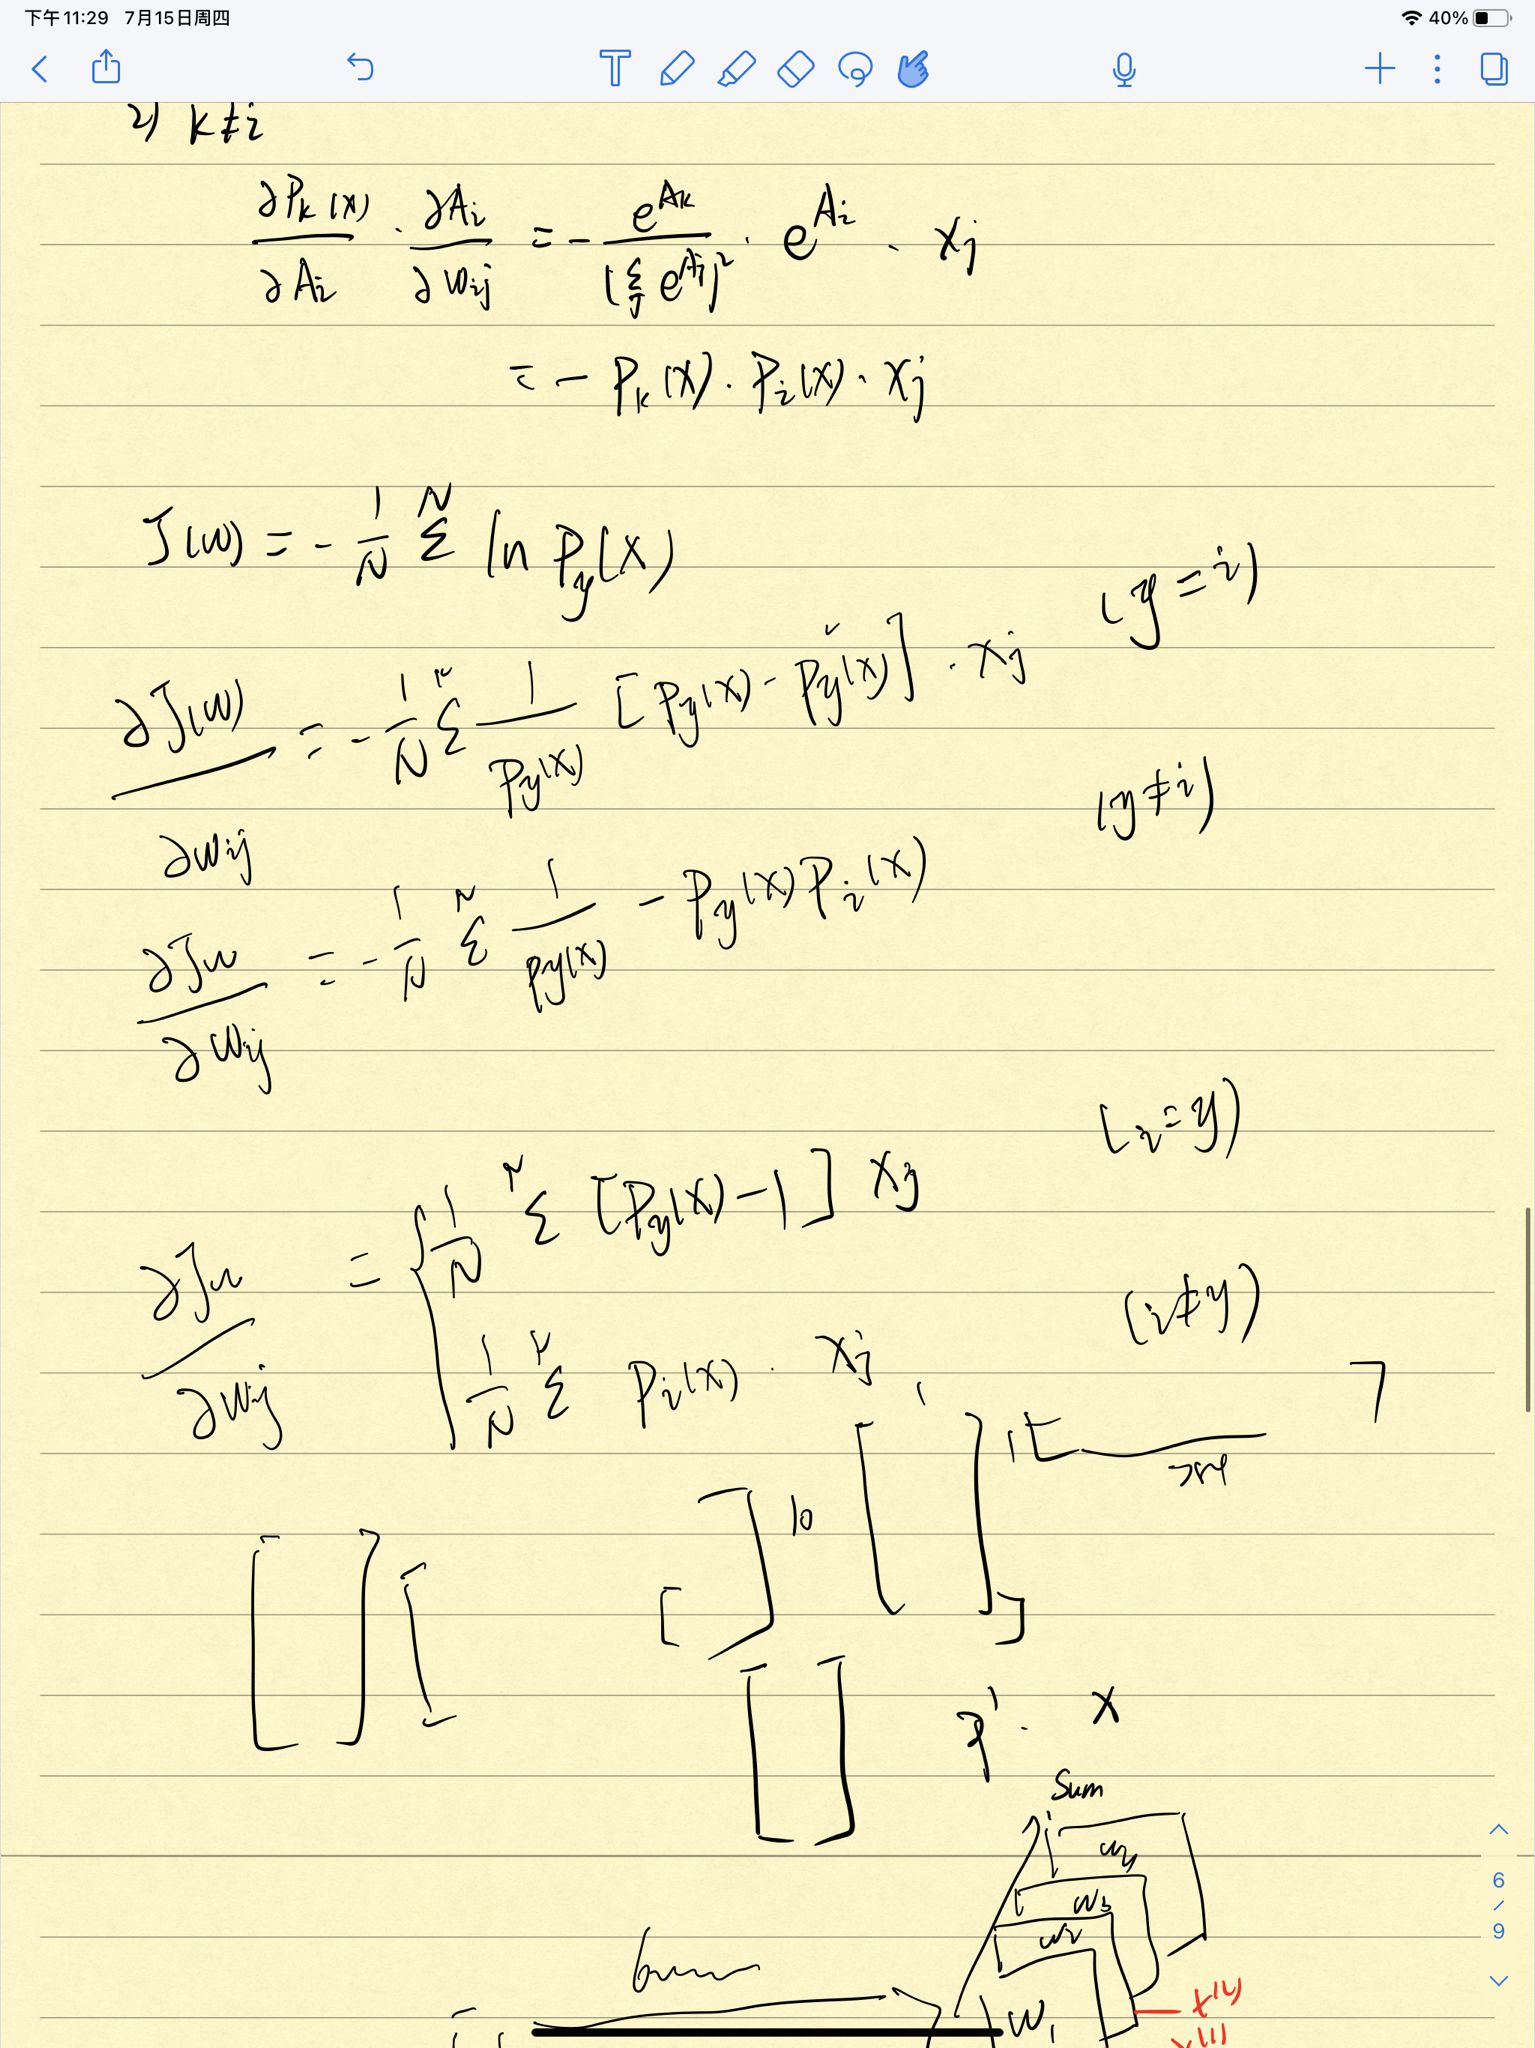 下午11:29 7月15日周四 40%
2) k≠i
∂Pk(x)/∂Ai · ∂Ai/∂wij = - e^Ak/(Σj e^Aj)² · e^Ai · xj
= - Pk(x) · Pi(x) · xj
J(w) = - 1/N Σ^N ln Py(x)
(y = i)
∂J(w)/∂wij = - 1/N Σ^N 1/Py(x) [Py(x) - Py²(x)] · xj
(y≠i)
∂Jw/∂wij = - 1/N Σ^N 1/Py(x) - Py(x)Pi(x)
(i = y)
∂Jw/∂wij = { 1/N Σ^N [Py(x) - 1] xj
(i≠y)
1/N Σ^N Pi(x) · xj
10
P' · x
Sum
w3
w2
w1
6
/
9